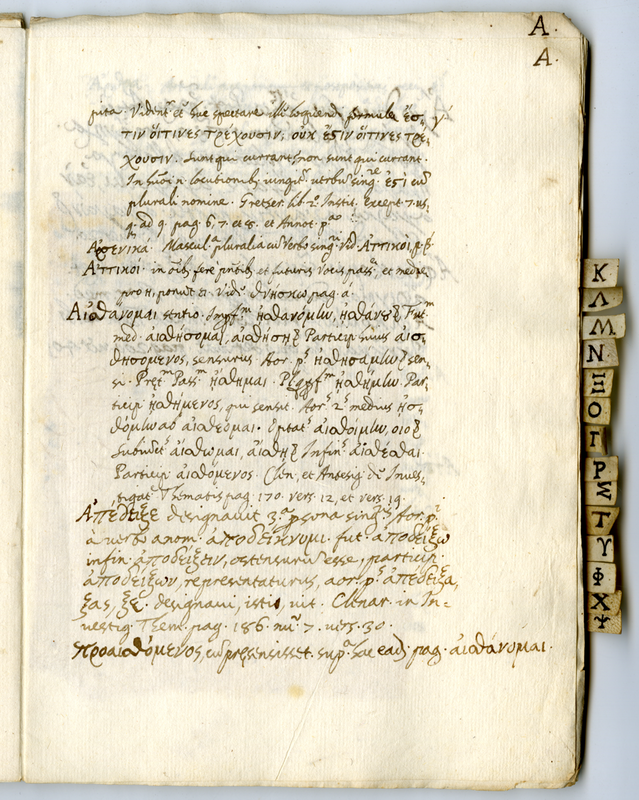 A.
A.
pita. Videntʳ. eͤ huc spectare illę loquendi formulę ἔσ-
τιν ὅιτινες τρέχουσιν; ουκ ἔστιν ὅιτινες τρέ-
χουσιν. Sunt qui currant: non sunt qui currant.
In locutionib. iungitʳ. verbū sing. ἔστι cū
plurali nomine. Gretser. lib. 2. Instit. except. 7. 
q. ad 9. pag. 6, 7. et 8. et Annot. pᵃ
Ἀρσενικά. Masculᵃ. pluralia cū verbo singⁱ. vid. Ἀττικοι, β.
Ἀττικοι. in oīb. ferè et futuris vocis passᵉ. et medię
pro η, ponūt ει. Vidᵉ. θνήσκω pag. α.
Ἀισθάνομαι sentio. Impfᵐ. ἠσθανόμην, ἠσθάνου. Futᵐ
med. ἀισθήσομαι, ἀισθήσῃ. Particip. huius ἀισ-
θησόμενος, sensurus. Aor. pˢ. ἠσθησάμην sen-
si. Pretᵐ. Passᵐ. ἤσθημαι. ἠσθήμην. Par-
ticip. ἠσθημένος, qui sensit. Aorˢ. 2ˢ. medius ἠσ-
θόμην ab ἀισθέομαι. Optatˢ. ἀισθοίμην, οιο
Subiūctˢ. ἀίσθωμαι, ἀίσθῃ. Infinˢ. ἀισθέσθαι.
Particip. ἀισθόμενος. Clen. et Antesig. de Inves-
tigat. Thematis pag. 170. vers. 12, et vers. 19.
Ἀπέδειξε designauit 3ᵃ. psona singˡⁱˢ Aor. pⁱ.
à verbo anom. ἀποδείκνυμι. fut. ἀποδείξω
infin. ἀποδείξειν, ostensurū esse, particip.
ἀποδείξων, repręsentaturus, aor. pˢ. ἀπέδειξα,
ξας, ξε. designaui, isti, uit. Clenar. in In-
uestig. Them. pag. 186. nu. 7. vers. 30.
προαισθόμενος, cū pręsensisset. supᵃ. hac eād. pag. ἀισθάνομαι.
Κ
Λ
Μ
Ν
Ξ
Ο
Π
Ρ
Σ
Τ
Υ
Φ
Χ
Ψ